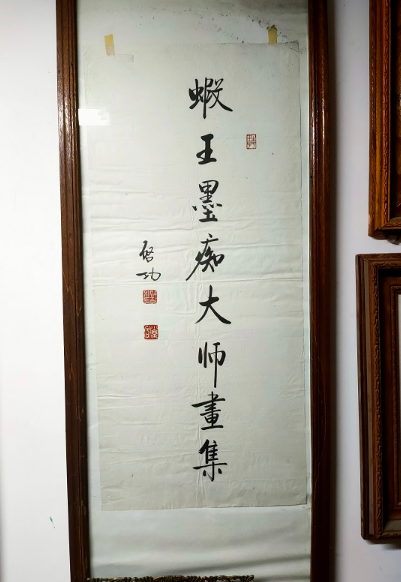 蝦王墨痴大师畫集
啓功